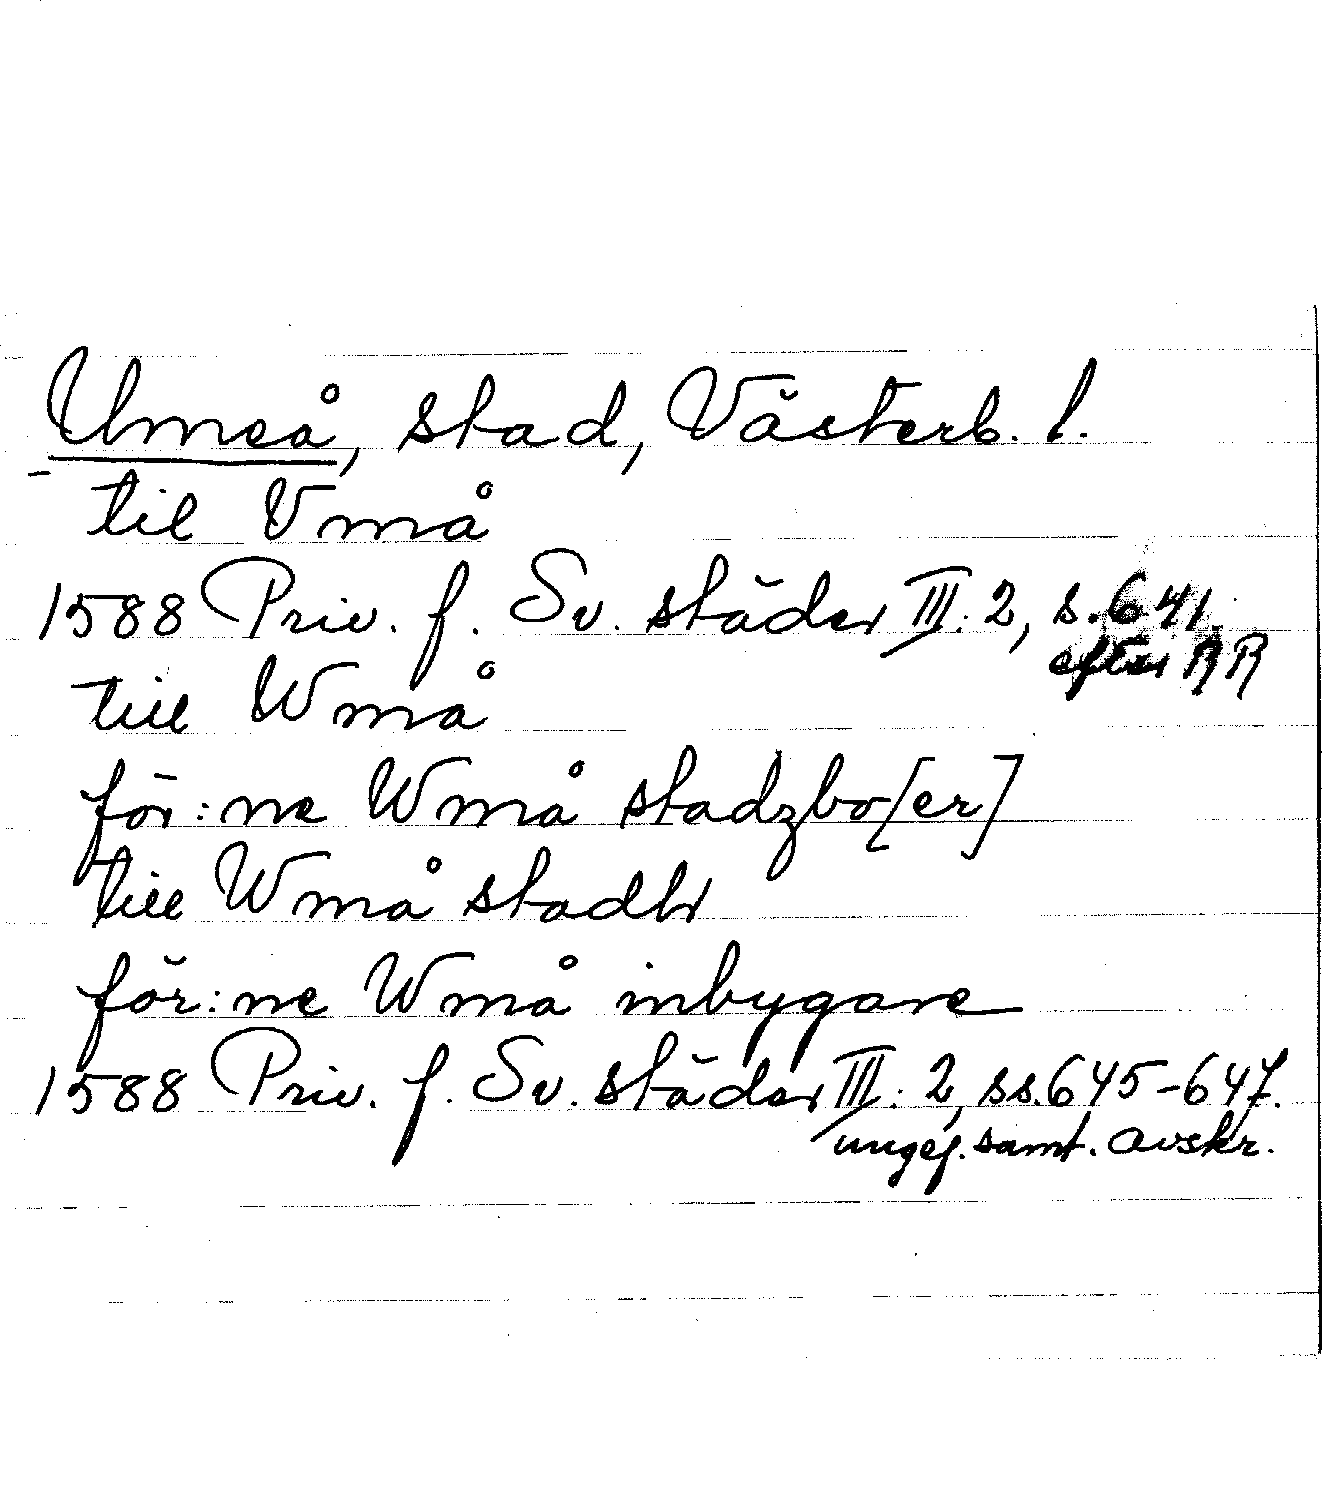 Umeå, stad, Västerb. l.
til Vmå
1588 Priv. f. Sv. städer III: 2, s. 641.
efter RR
till Wmå
för:ne Wmå stadzbo[er]
till Wmå stadh
för:ne Wmå inbygare
1588 Priv. f. Sv. städer III: 2, ss. 645-647.
ungef. samt. avskr.